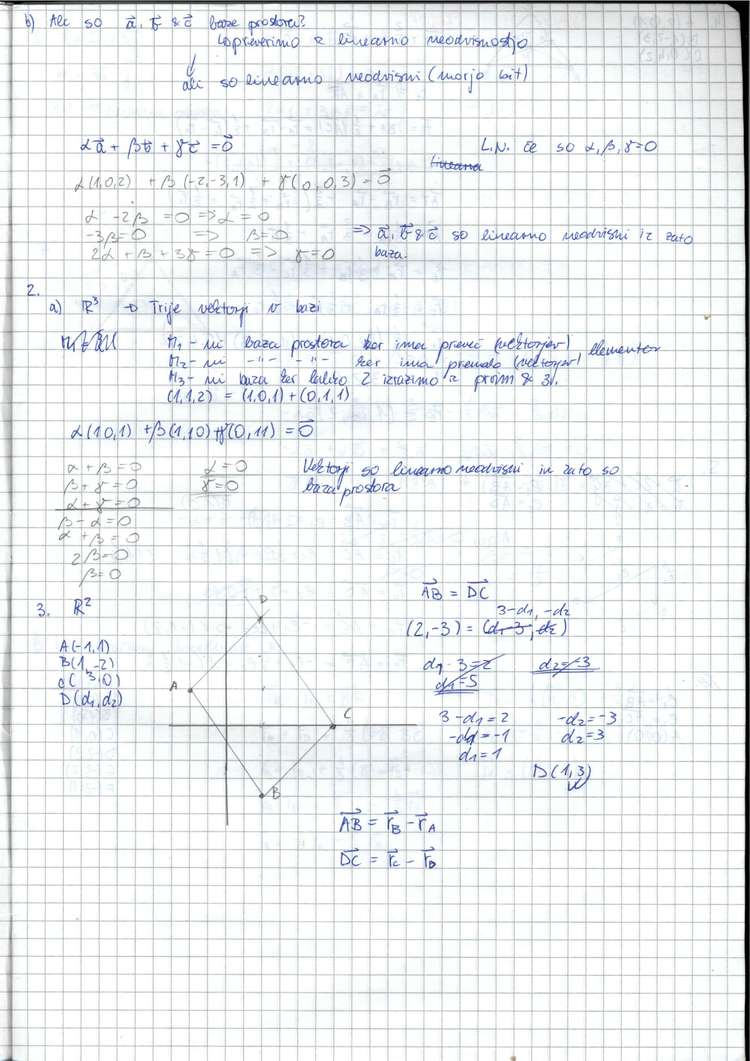 b) Ali so a⃗, b⃗ & c⃗ baze prostora?
preverimo z linearno neodvisnostjo
ali so linearno neodvisni (morjo bit)
αa⃗ + βb⃗ + γc⃗ = 0⃗
L.N. če so α, β, γ = 0
α(1,0,2) + β(-2,-3,1) + γ(0,0,3) = 0⃗
α - 2β = 0 => α = 0
-3β = 0 => β = 0
2α + β + 3γ = 0 => γ = 0
=> a⃗, b⃗ & c⃗ so linearno neodvisni iz zato
baza.
2.
a) ℝ³ → Trije vektorji v bazi
M₁ - ni baza prostora ker ima preveč (vektorjev) elementov
M₂ - ni -"- -"- ker ima premalo (vektorjev)
M₃ - ni baza ker lahko 2 izrazimo z prvim & 3.
(1,1,2) = (1,0,1) + (0,1,1)
α(1,0,1) + β(1,1,0) + γ(0,1,1) = 0⃗
α + β = 0
β + γ = 0
α + γ = 0
β - α = 0
α + β = 0
2β = 0
β = 0
α = 0
γ = 0
Vektorji so linearno neodvisni in zato so
baza prostora
3. ℝ²
A(-1,1)
B(1,-2)
C(3,0)
D(d₁,d₂)
D
A
C
B
AB⃗ = DC⃗
3-d₁, -d₂
(2,-3) = (d₁-3, d₂)
d₁-3=2
d₂=-3
d₁=5
3-d₁=2
-d₂=-3
-d₁=-1
d₂=3
d₁=1
D(1,3)
AB⃗ = r⃗_B - r⃗_A
DC⃗ = r⃗_C - r⃗_D